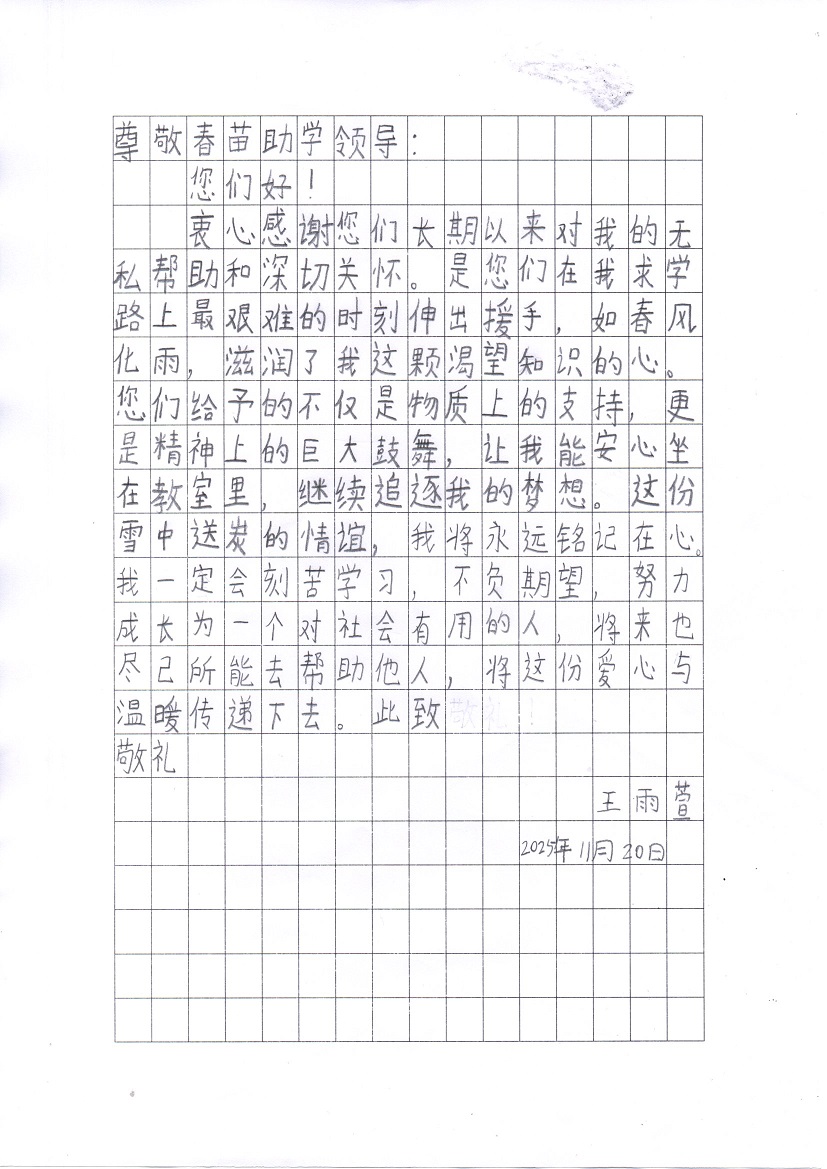 尊敬春苗助学领导：
您们好！
衷心感谢您们长期以来对我的无
私帮助和深切关怀。是您们在我求学
路上最艰难的时刻伸出援手，如春风
化雨，滋润了我这颗渴望知识的心。
您们给予的不仅是物质上的支持，更
是精神上的巨大鼓舞，让我能安心坐
在教室里，继续追逐我的梦想。这份
雪中送炭的情谊，我将永远铭记在心。
我一定会刻苦学习，不负期望，努力
成长为一个对社会有用的人，将来也
尽己所能去帮助他人，将这份爱心与
温暖传递下去。此致敬礼！
敬礼
王雨萱
2025年11月20日